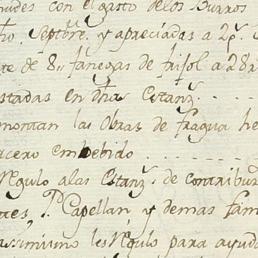 con el gasto delos Burros
Septbre. y apreciadas a 2p.
te de 8 fanegas de frisol a
estadas en dha Estanz.
montan las Obras de fragua he
acero embebido
Regulo alas Estanz. de contribu
Capellan, y demas fam
assimismo les Regulo para ayuda